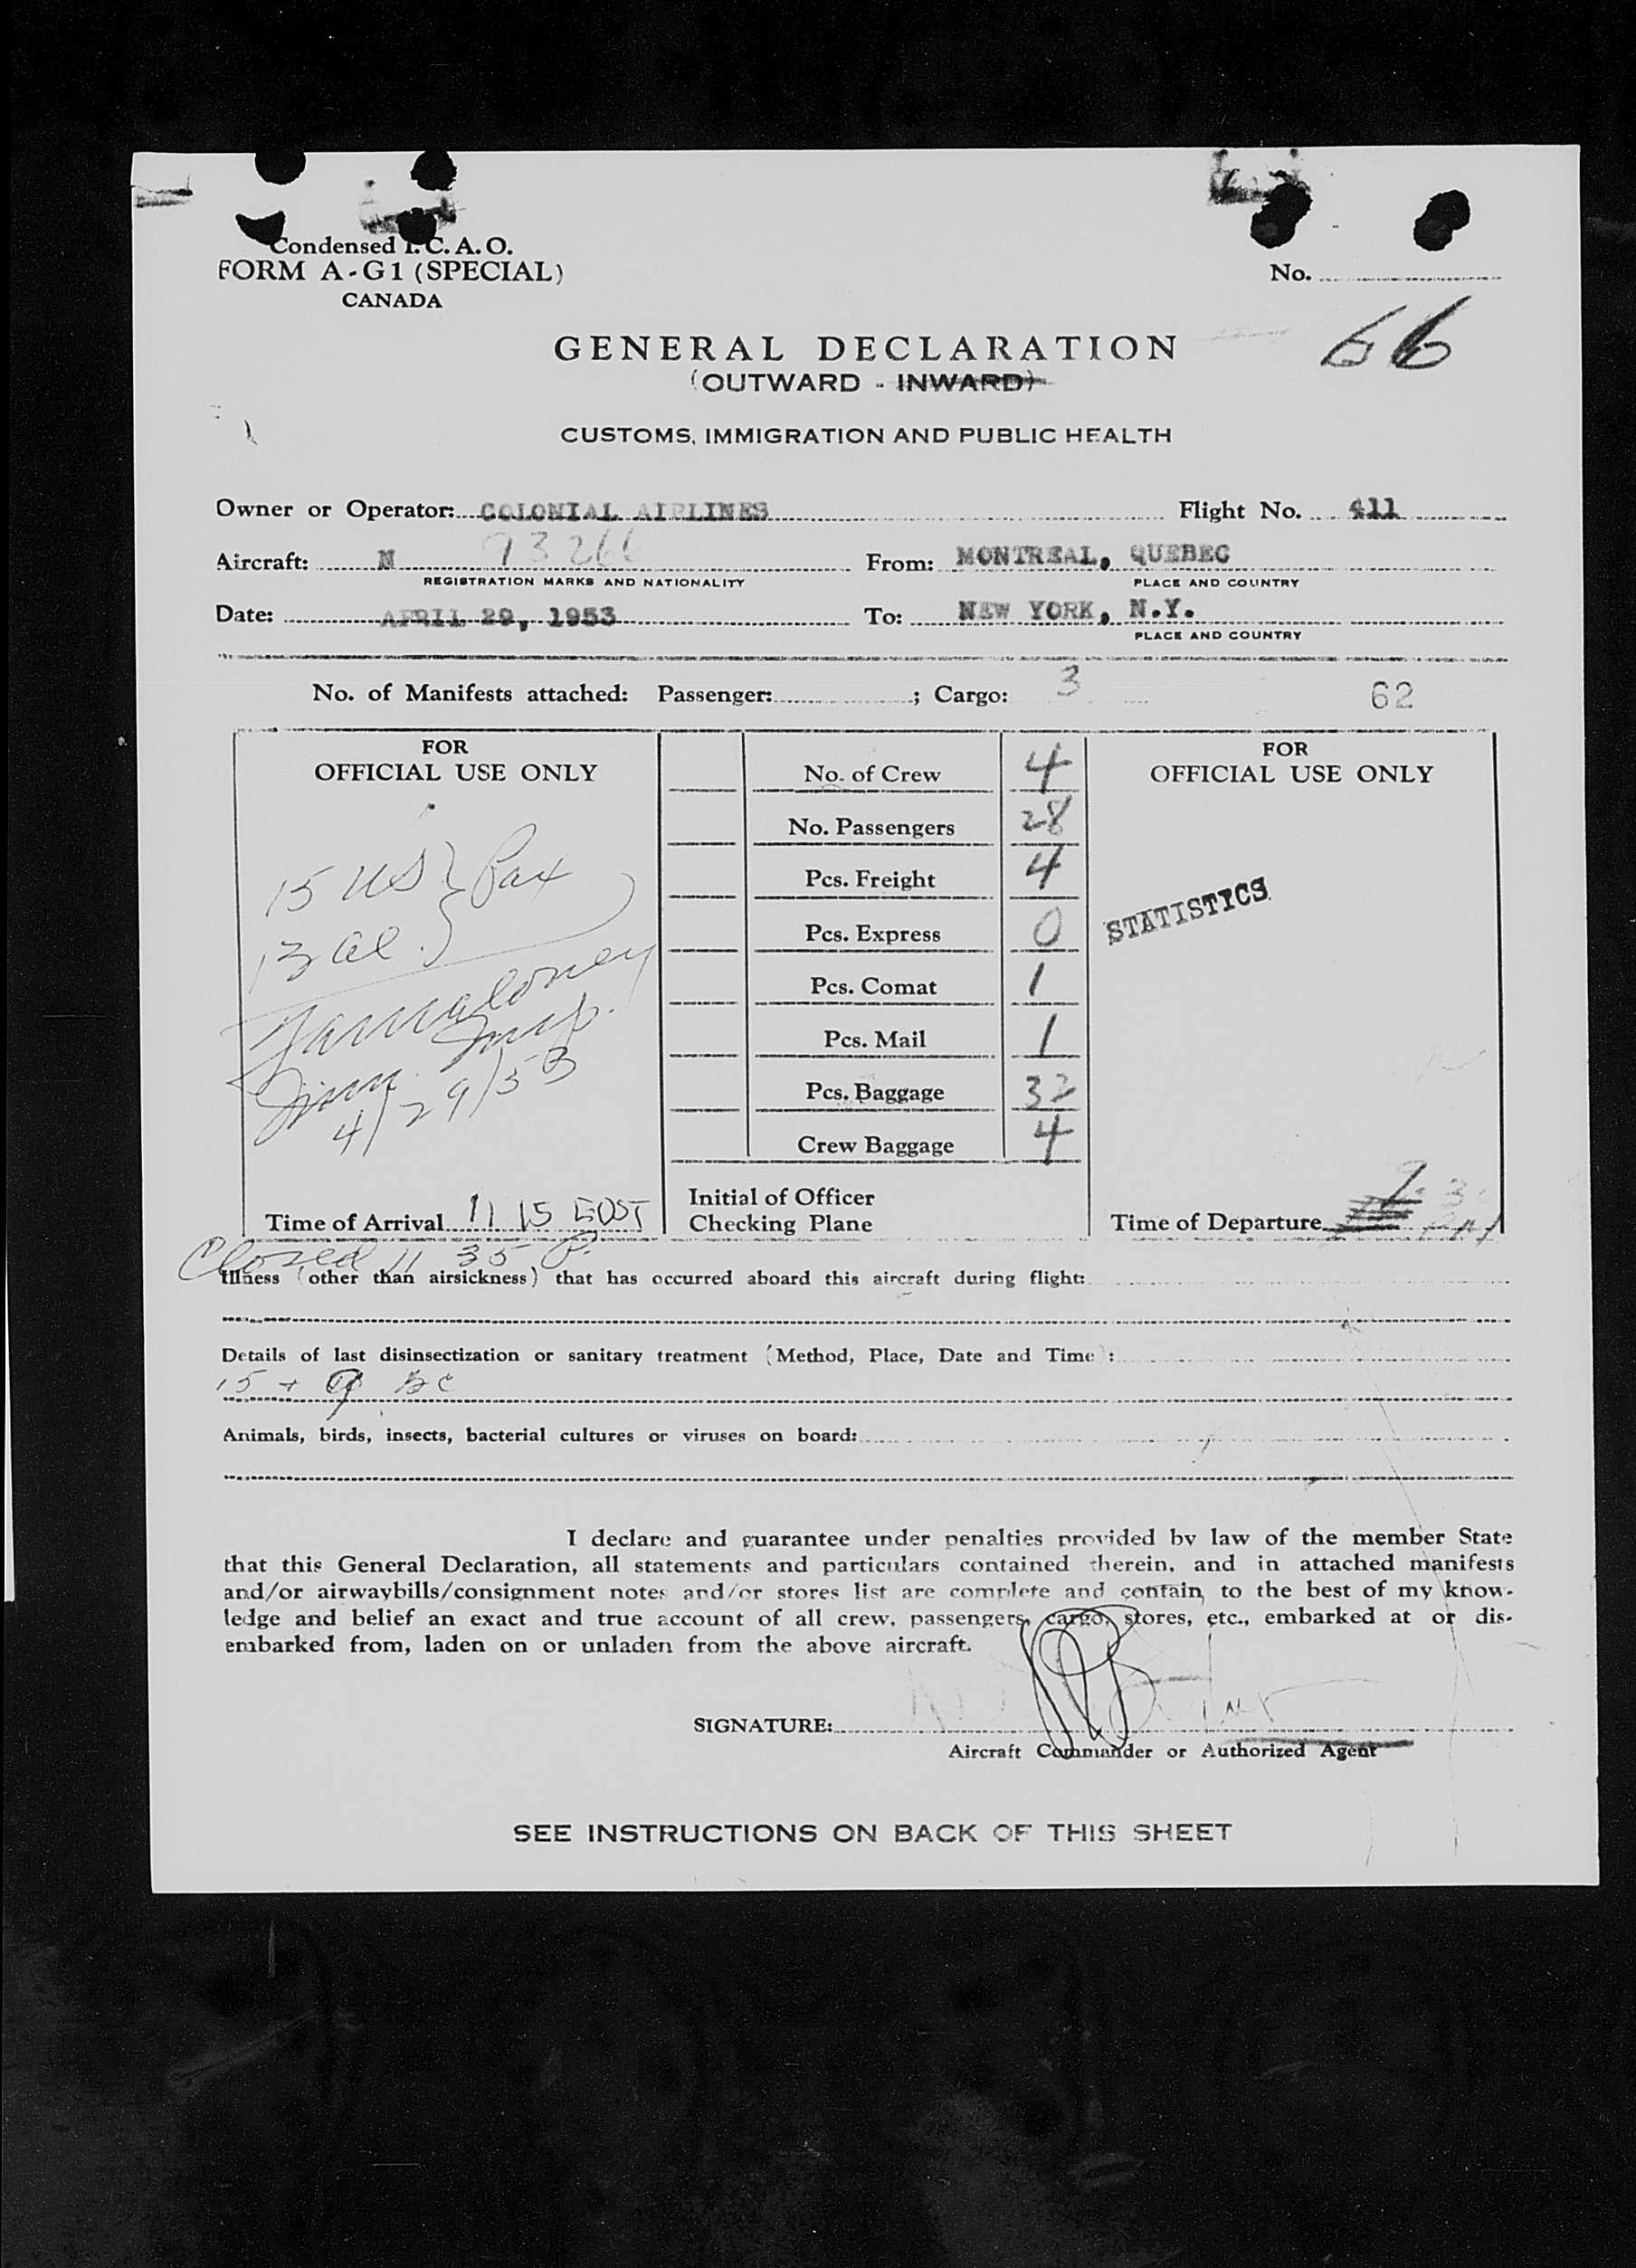 Condensed I. C. A. O.
FORM A-G1 (SPECIAL)
CANADA
No.
66
GENERAL DECLARATION
(OUTWARD - INWARD)
CUSTOMS, IMMIGRATION AND PUBLIC HEALTH
Owner or Operator: COLONIAL AIRLINES Flight No. 411
Aircraft: N 93266 From: MONTREAL, QUEBEC
REGISTRATION MARKS AND NATIONALITY PLACE AND COUNTRY
Date: APRIL 29, 1953 To: NEW YORK, N.Y.
PLACE AND COUNTRY
No. of Manifests attached: Passenger: ; Cargo: 3 62
FOR
OFFICIAL USE ONLY
15 US } Pax
13 al.
Imm. Insp.
4/29/53
Time of Arrival 11 15 EDST
No. of Crew 4
No. Passengers 28
Pcs. Freight 4
Pcs. Express 0
Pcs. Comat 1
Pcs. Mail 1
Pcs. Baggage 32
Crew Baggage 4
Initial of Officer
Checking Plane
FOR
OFFICIAL USE ONLY
STATISTICS
Time of Departure
Closed 11 35 P.
Illness (other than airsickness) that has occurred aboard this aircraft during flight:
Details of last disinsectization or sanitary treatment (Method, Place, Date and Time):
15 +
Animals, birds, insects, bacterial cultures or viruses on board:
I declare and guarantee under penalties provided by law of the member State
that this General Declaration, all statements and particulars contained therein, and in attached manifests
and/or airwaybills/consignment notes and/or stores list are complete and contain, to the best of my know-
ledge and belief an exact and true account of all crew, passengers, cargo, stores, etc., embarked at or dis-
embarked from, laden on or unladen from the above aircraft.
SIGNATURE:
Aircraft Commander or Authorized Agent
SEE INSTRUCTIONS ON BACK OF THIS SHEET